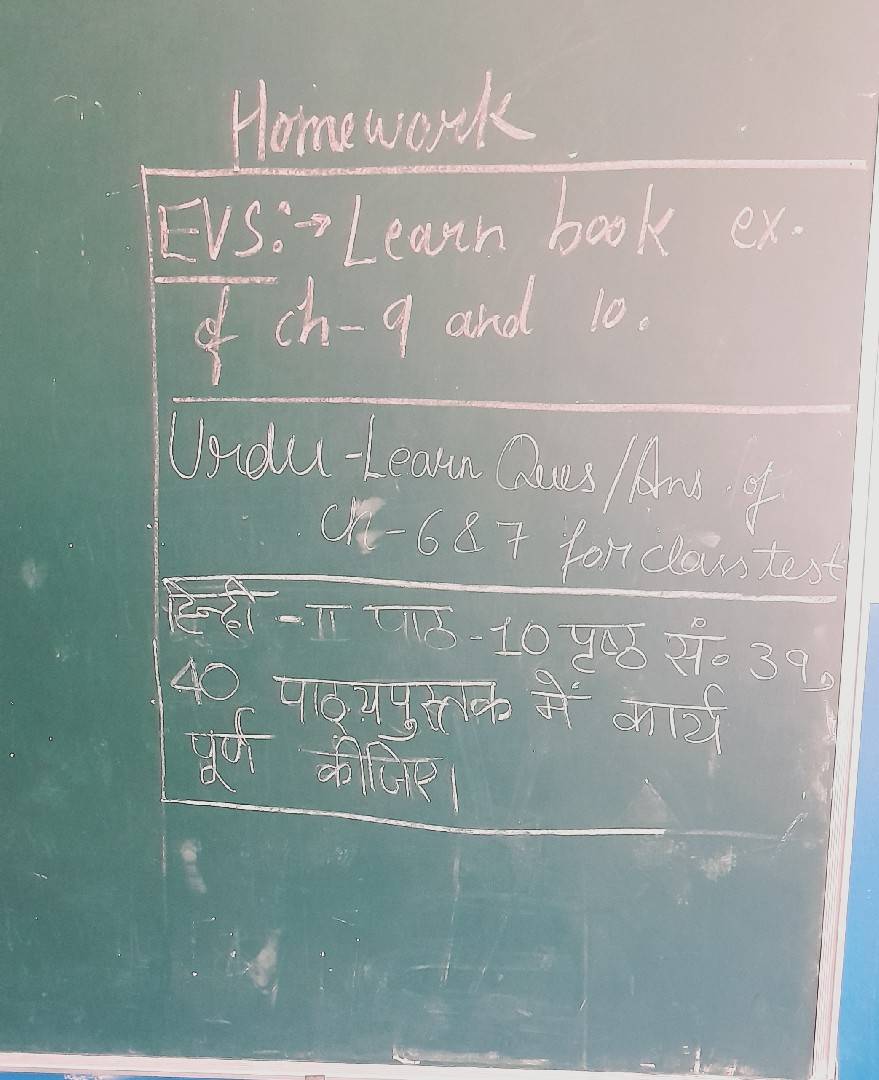 Homework
EVS:→ Learn book ex.
of ch-9 and 10.
Urdu-Learn Ques/Ans. of
Ch-6&7 for class test
हिन्दी -II पाठ-10 पृष्ठ सं० 39,
40 पाठ्यपुस्तक में कार्य
पूर्ण कीजिए।